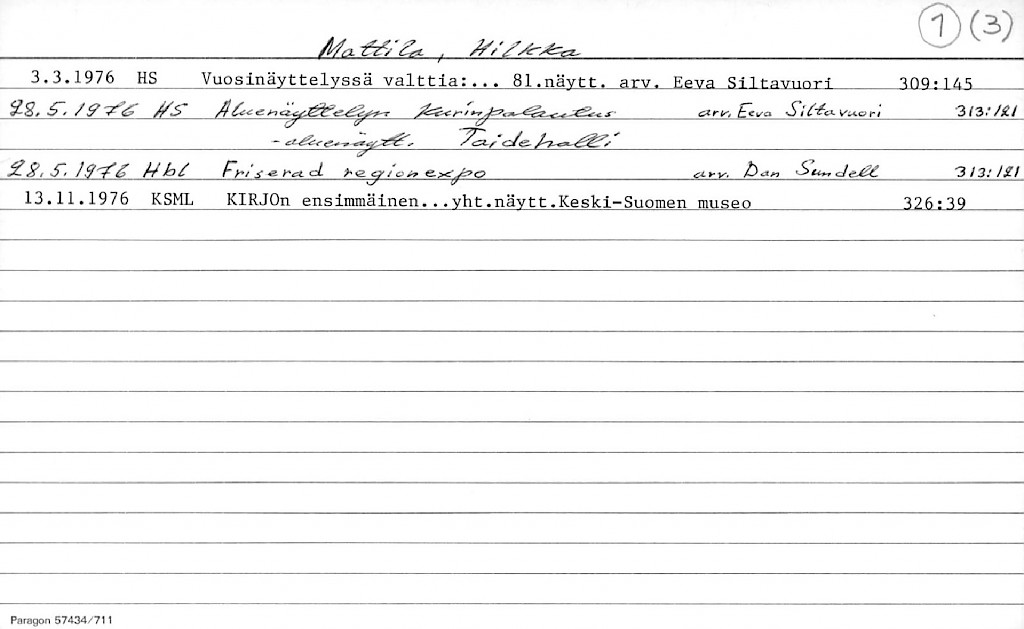 1 (3)
Mattila, Hilkka
3.3.1976 HS Vuosinäyttelyssä valttia:... 81.näytt. arv. Eeva Siltavuori 309:145
28.5.1976 HS Aluenäyttelyn kurinpalautus arv. Eeva Siltavuori 313:121
-aluenäytt. Taidehalli
28.5.1976 Hbl Friserad regionexpo arv. Dan Sundell 313:121
13.11.1976 KSML KIRJOn ensimmäinen...yht.näytt.Keski-Suomen museo 326:39
Paragon 57434/711